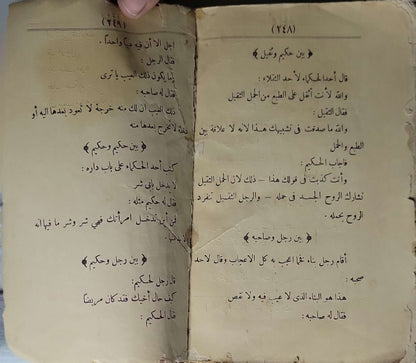 (٢٤٨)
﴿ بين حكيم وثقيل ﴾
قال أحد الحكماء لأحد الثقلاء :
والله لأنت أثقل على الطبع من الحمل الثقيل
فقال الثقيل :
والله ما صدقت في تشبيهك هذا لانه لا علاقة بين
الطبع والحمل
فأجاب الحكيم :
وأنت كذبت في قولك هذا — ذلك لان الحمل الثقيل
تشارك الروح الجسد في حمله — والرجل الثقيل تنفرد
الروح بحمله .
﴿ بين رجل وصاحبه ﴾
أقام رجل بناء فخما اعجب به كل الاعجاب وقال لاحد
صحبه :
هذا هو البناء الذى لا عيب فيه ولا نقص
فقال له صاحبه :
(٢٤٩)
اجل الا أن فيه عيبا واحداً .
فقال الرجل :
وما يكون ذلك العيب يا ترى
فقال له صاحبه :
ذلك العيب ان لك منه خرجة لا تعود بعدها اليه أو
لا تخرج بعدها منه
﴿ بين حكيم وحكيم ﴾
كتب أحد الحكماء على باب داره :
لا يدخل بابى شر
فقال له حكيم مثله :
فمن أين تدخل امرأتك فهي شر وشر ما فيها انه
لا بد منها .
﴿ بين رجل وحكيم ﴾
قال رجل لحكيم :
كيف حال أخيك فقد كان مريضا
فقال الحكيم :